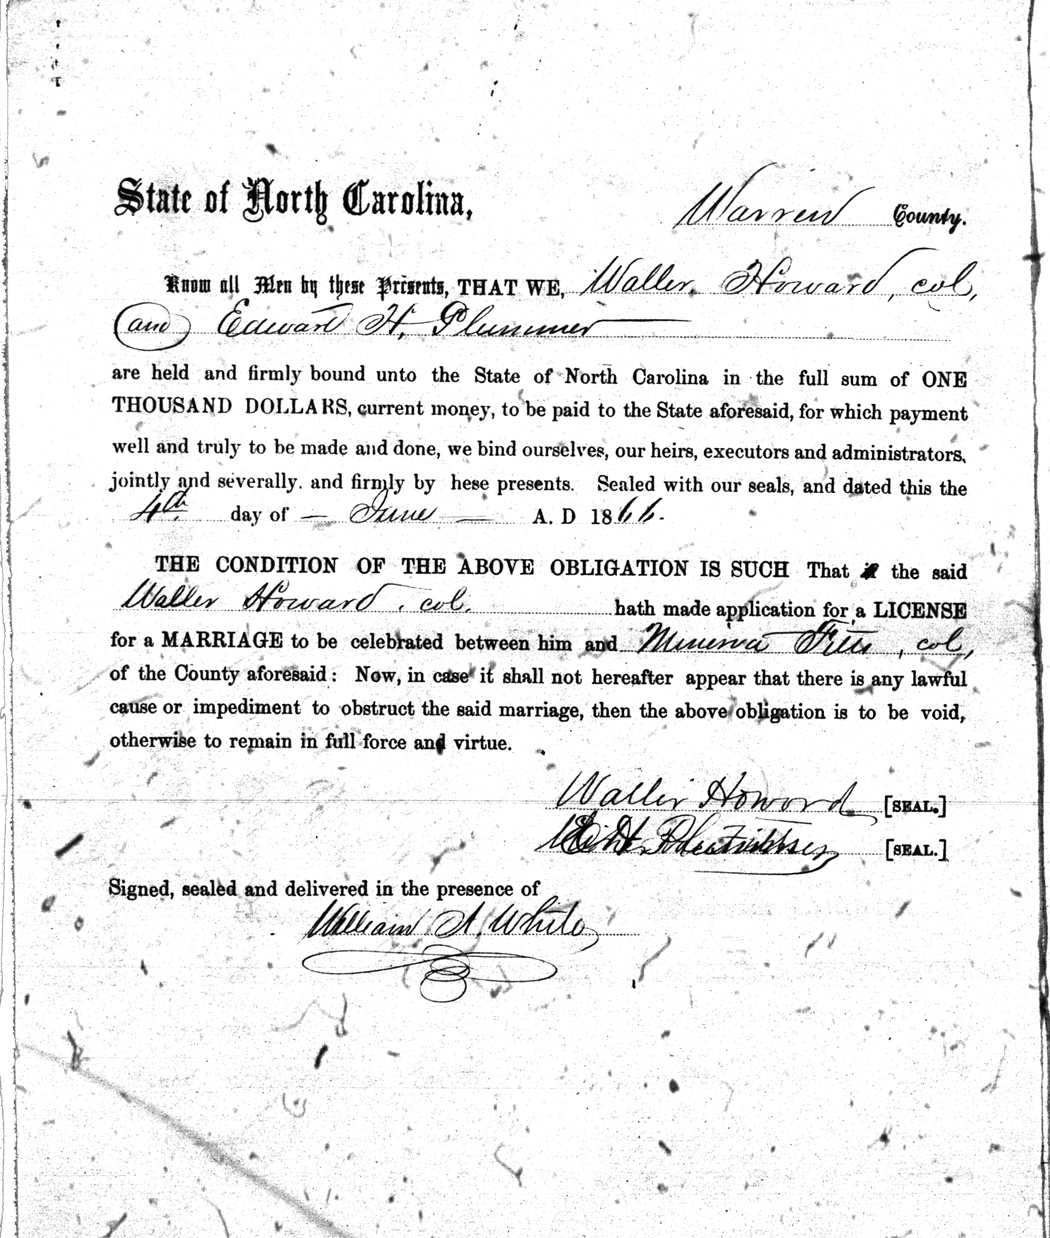 State of North Carolina, Warren County.
Know all Men by these Presents, THAT WE, Waller Howard, col,
and Edward H. Plummer
are held and firmly bound unto the State of North Carolina in the full sum of ONE
THOUSAND DOLLARS, current money, to be paid to the State aforesaid, for which payment
well and truly to be made and done, we bind ourselves, our heirs, executors and administrators,
jointly and severally. and firmly by hese presents. Sealed with our seals, and dated this the
4th day of — June — A. D 1866.
THE CONDITION OF THE ABOVE OBLIGATION IS SUCH That the said
Waller Howard, col. hath made application for a LICENSE
for a MARRIAGE to be celebrated between him and Minerva, col,
of the County aforesaid: Now, in case it shall not hereafter appear that there is any lawful
cause or impediment to obstruct the said marriage, then the above obligation is to be void,
otherwise to remain in full force and virtue.
Waller Howard [SEAL.]
[SEAL.]
Signed, sealed and delivered in the presence of
William A. White